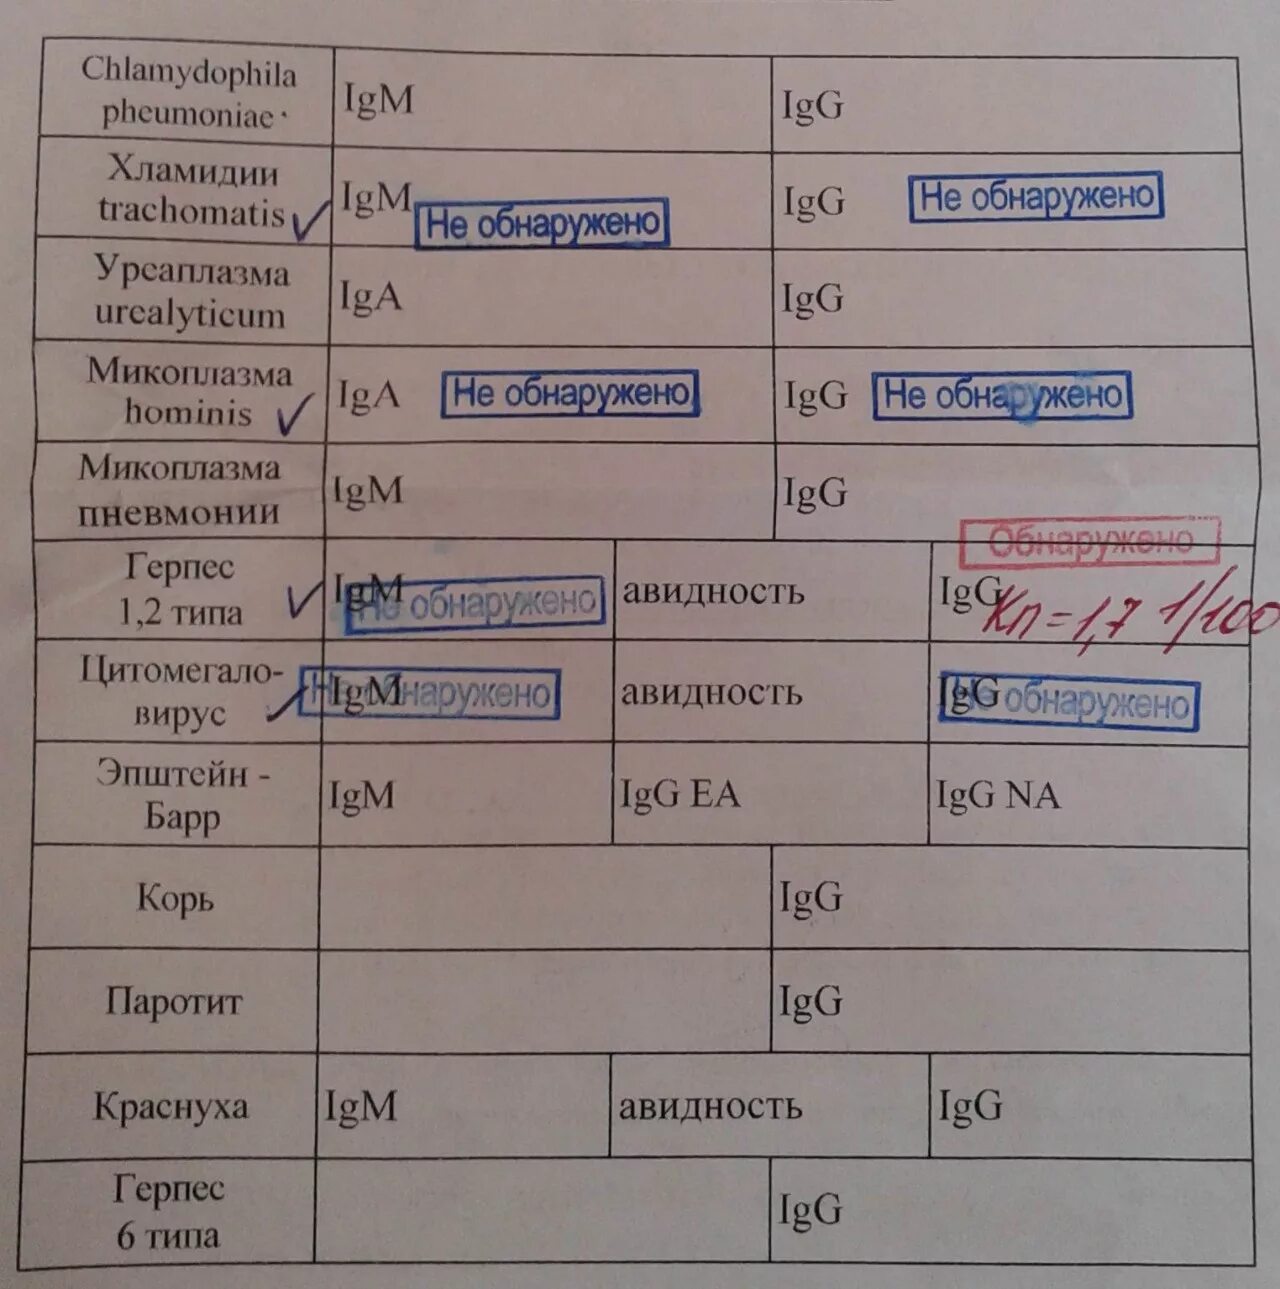 Chlamydophila
pheumoniae
IgM
IgG
Хламидии
trachomatis
IgM
Не обнаружено
IgG
Не обнаружено
Уреаплазма
urealyticum
IgA
IgG
Микоплазма
hominis
IgA
Не обнаружено
IgG
Не обнаружено
Микоплазма
пневмонии
IgM
IgG
Герпес
1,2 типа
IgM
Не обнаружено
авидность
Обнаружено
IgG
Кп=1,7 1/100
Цитомегало-
вирус
IgM
Не обнаружено
авидность
IgG
Не обнаружено
Эпштейн -
Барр
IgM
IgG EA
IgG NA
Корь
IgG
Паротит
IgG
Краснуха
IgM
авидность
IgG
Герпес
6 типа
IgG